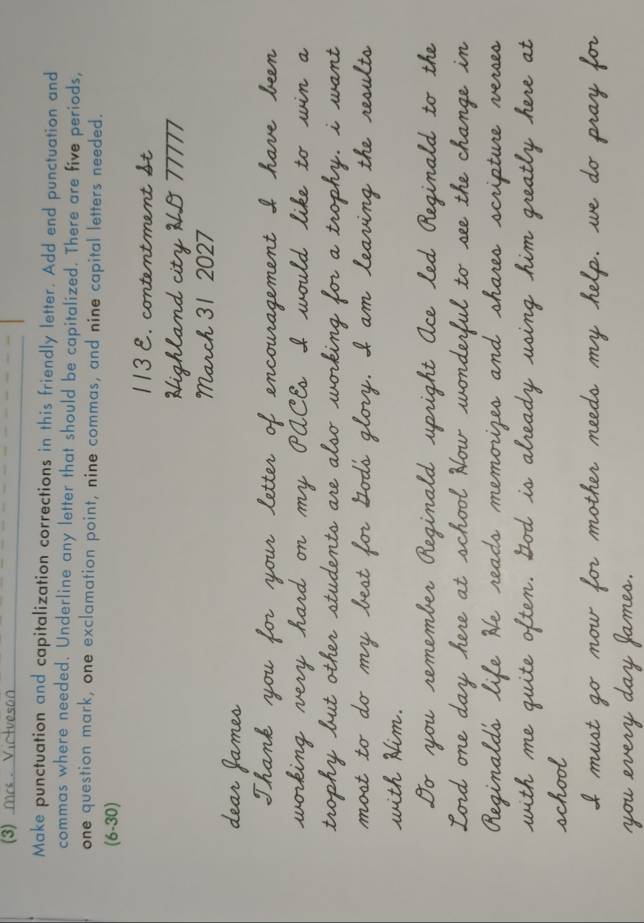 (3) Mrs. Victveson
Make punctuation and capitalization corrections in this friendly letter. Add end punctuation and
commas where needed. Underline any letter that should be capitalized. There are five periods,
one question mark, one exclamation point, nine commas, and nine capital letters needed.
(6-30)
113 E. contentment St
Highland city HD 77777
March 31 2027
dear James
Thank you for your letter of encouragement I have been
working very hard on my PACEs I would like to win a
trophy but other students are also working for a trophy. i want
most to do my best for God's glory. I am leaving the results
with Him.
Do you remember Reginald upright Ace led Reginald to the
Lord one day here at school How wonderful to see the change in
Reginald's life He reads memorizes and shares scripture verses
with me quite often. God is already using him greatly here at
school
I must go now for mother needs my help. we do pray for
you every day James.